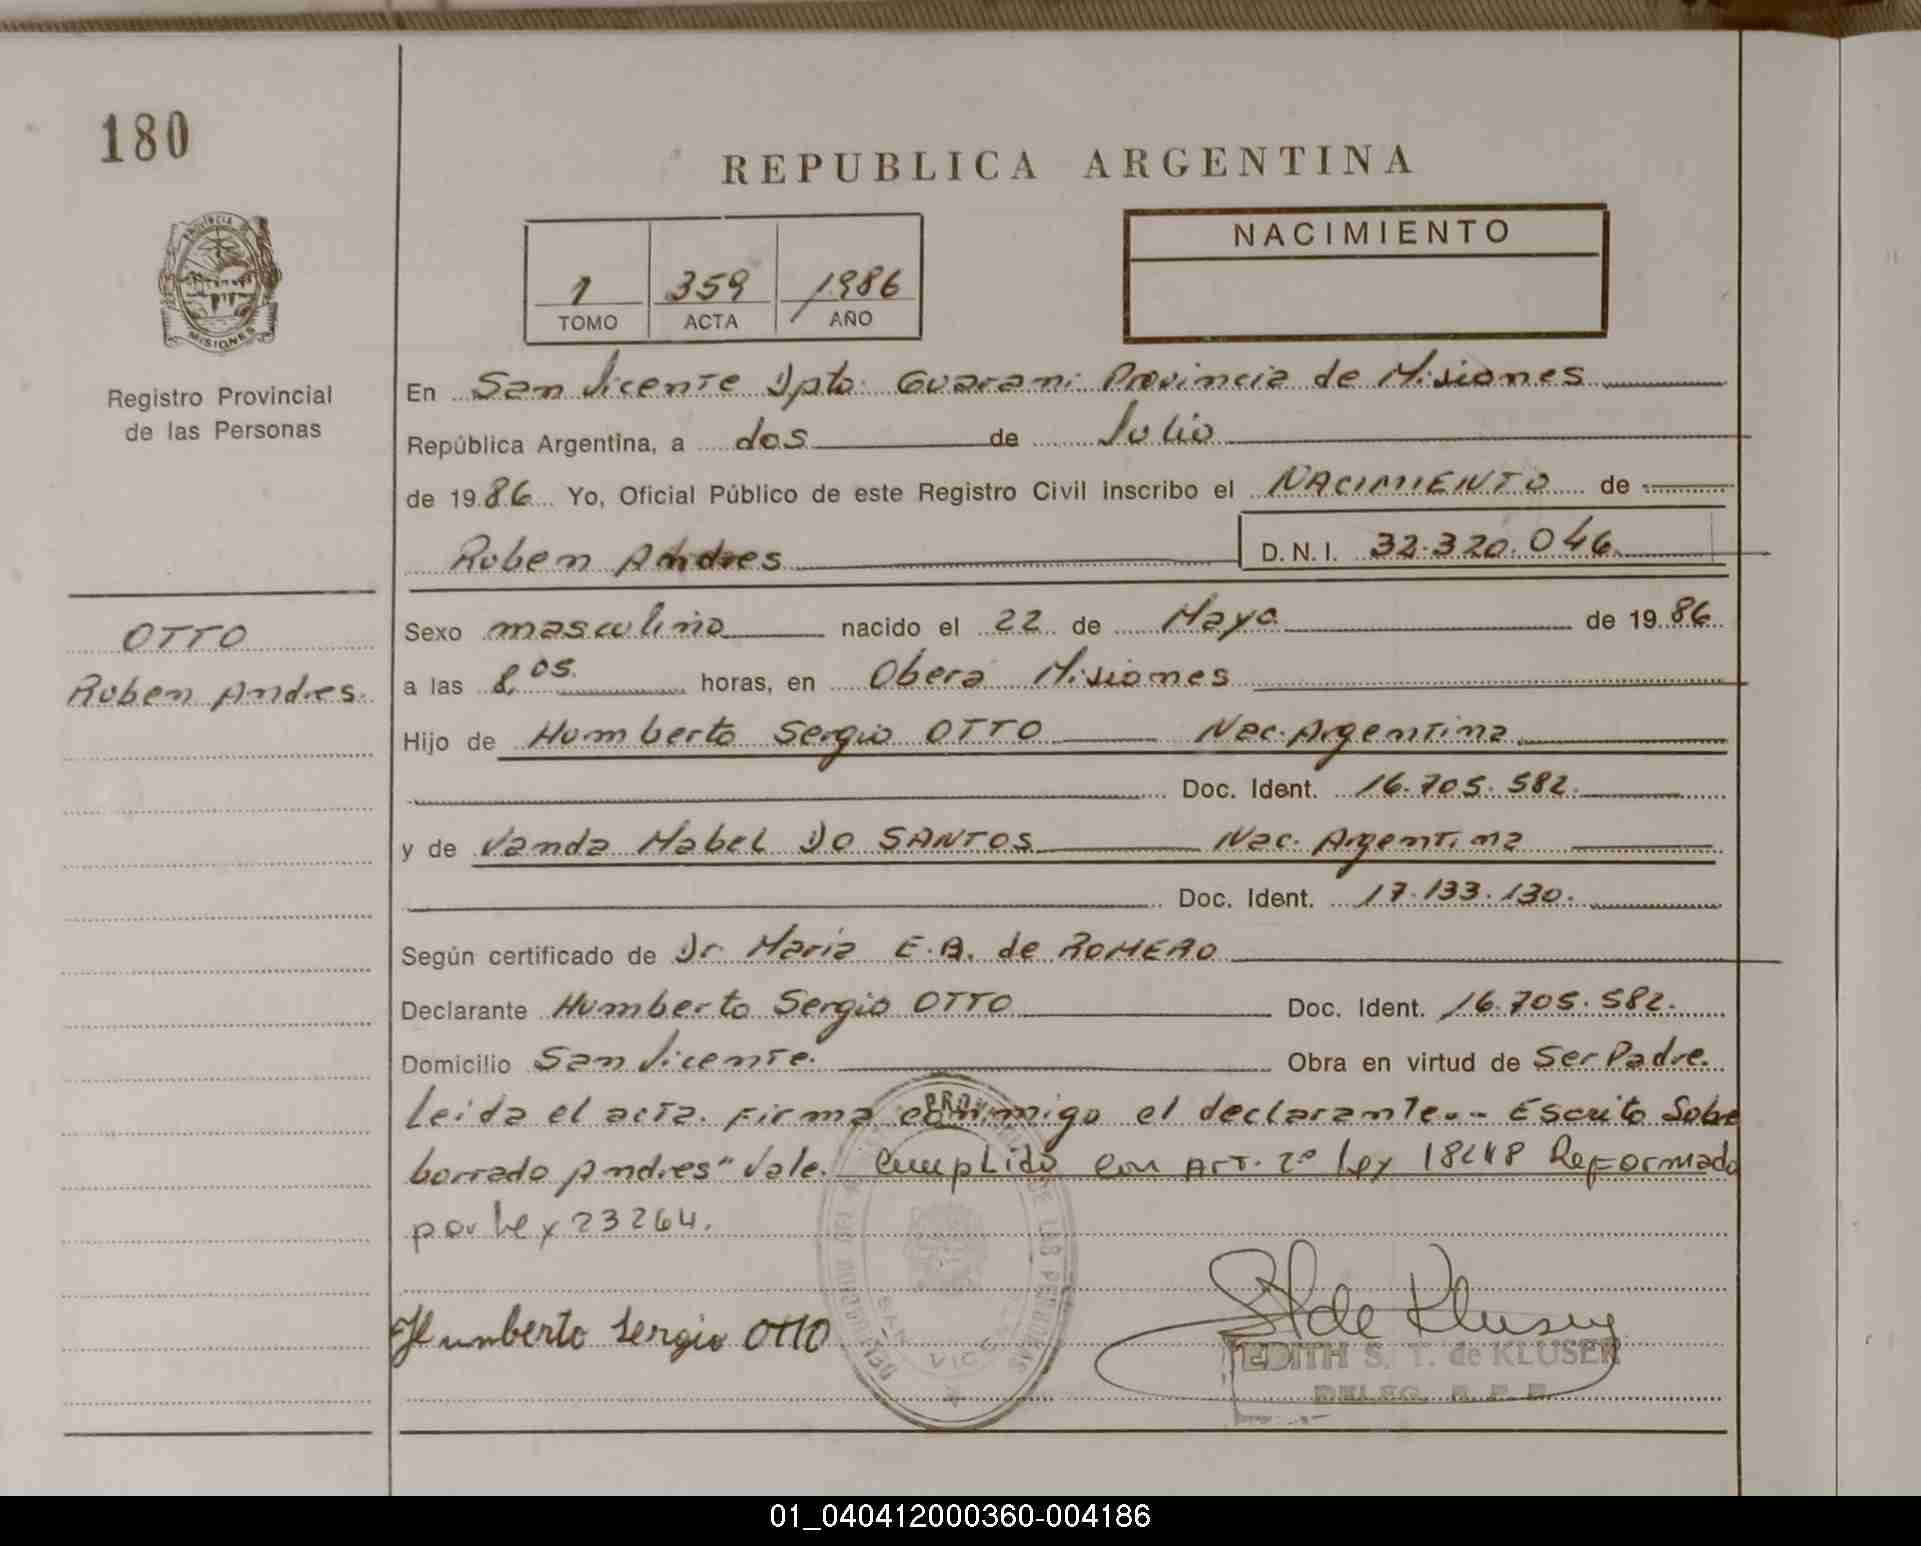 180
REPUBLICA ARGENTINA
PROVINCIA DE
MISIONES
NACIMIENTO
1 359 1986
TOMO ACTA AÑO
Registro Provincial
de las Personas
En San Vicente Dpto. Guarani Provincia de Misiones
República Argentina, a dos de Julio
de 1986 Yo, Oficial Público de este Registro Civil inscribo el NACIMIENTO de
Ruben Andres D.N.I. 32.320.046
OTTO
Ruben Andres.
Sexo masculino nacido el 22 de Mayo de 1986
a las 8,05. horas, en Oberá Misiones
Hijo de Humberto Sergio OTTO Nac. Argentina
Doc. Ident. 16.705.582.
y de Vanda Mabel DO SANTOS Nac. Argentina
Doc. Ident. 17.133.130.
Según certificado de Dr Maria E.B. de ROMERO
Declarante Humberto Sergio OTTO Doc. Ident. 16.705.582.
Domicilio San Vicente. Obra en virtud de Ser Padre.
Leida el acta. Firma conmigo el declarante.-- Escrito Sobre
borrado Andres" Vale. Cumplido con Art. 2º Ley 18248 Reformado
por Ley 23264.
Humberto Sergio OTTO
de Kluser
EDITH S. T. de KLUSER
DELEG. R. P. P.
01_040412000360-004186